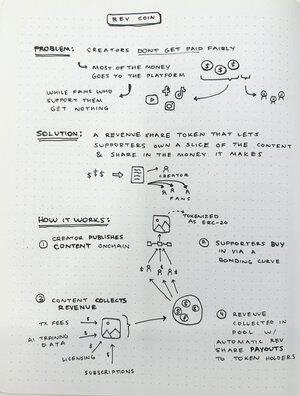 REV COIN
PROBLEM: CREATORS DON'T GET PAID FAIRLY
MOST OF THE MONEY
GOES TO THE PLATFORM
$ $ $
WHILE FANS WHO
SUPPORT THEM
GET NOTHING
SOLUTION: A REVENUE SHARE TOKEN THAT LETS
SUPPORTERS OWN A SLICE OF THE CONTENT
& SHARE IN THE MONEY IT MAKES
$ $ $
CREATOR
FANS
HOW IT WORKS:
TOKENIZED
AS ERC-20
① CREATOR PUBLISHES
CONTENT ONCHAIN
② SUPPORTERS BUY
IN VIA A
BONDING CURVE
$ $ $
③ CONTENT COLLECTS
REVENUE
TX FEES
AI TRAINING
DATA
LICENSING
SUBSCRIPTIONS
$ $ $ $
$ $ $
④ REVENUE
COLLECTED IN
POOL W/
AUTOMATIC REV
SHARE PAYOUTS
TO TOKEN HOLDERS